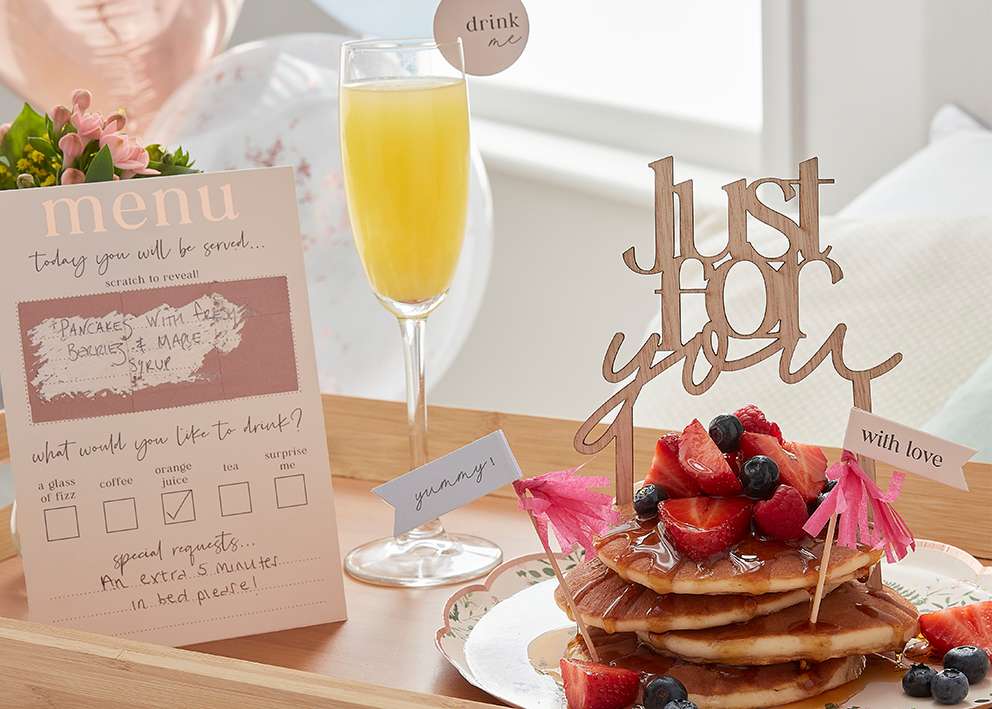 drink
me
menu
today you will be served...
scratch to reveal!
PANCAKES WITH FRESH
BERRIES & MAPLE
SYRUP
what would you like to drink?
a glass
of fizz
coffee
orange
juice
tea
surprise
me
special requests...
An extra 5 minutes
in bed please!
yummy!
Just
FOR
you
with love